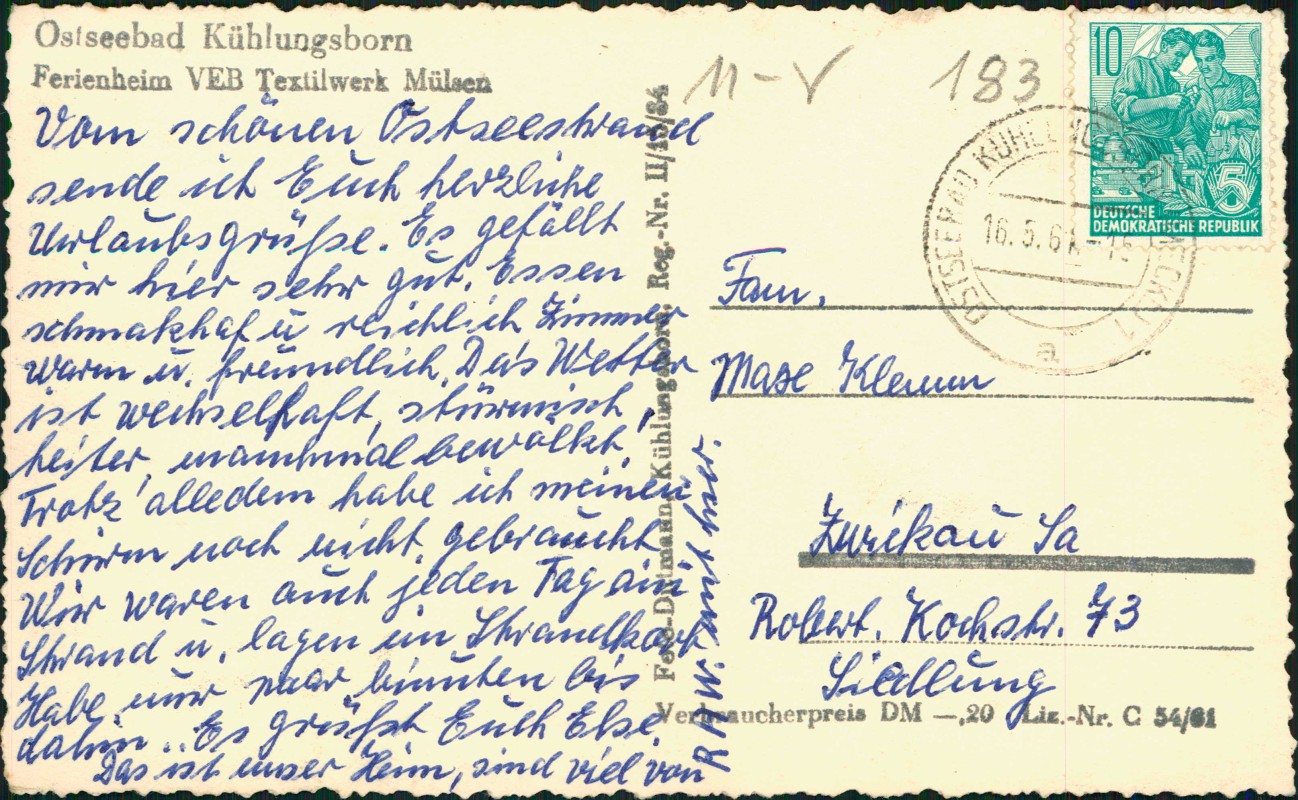 Ostseebad Kühlungsborn
Ferienheim VEB Textilwerk Mülsen
Vom schönen Ostseestrand
sende ich Euch herzliche
Urlaubsgrüße. Es gefällt
mir hier sehr gut. Essen
schmakhaf u reichlich Zimmer
warm u. freundlich. Das Wetter
ist wechselhaft, stürmisch,
heiter, manchmal bewölkt,
Trotz alledem habe ich meinen
Schirm noch nicht gebraucht.
Wir waren auch jeden Tag am
Strand u. lagen im Strandkorb
Habe nur paar
dahin.. Es grüßt Euch Else.
Das ist unser Heim, sind viel von
RAW. mit hier.
Foto-Dittmann, Kühlungsborn, Reg.-Nr. II/18/84
11-V 183
10
5
DEUTSCHE
DEMOKRATISCHE REPUBLIK
OSTSEEBAD KÜHLUNGSBORN
16.5.61-15
a
Fam.
Maxe Klemm
Zwickau Sa
Robert. Kochstr. 73
Siedlung
Verbraucherpreis DM —,20 Liz.-Nr. C 54/61